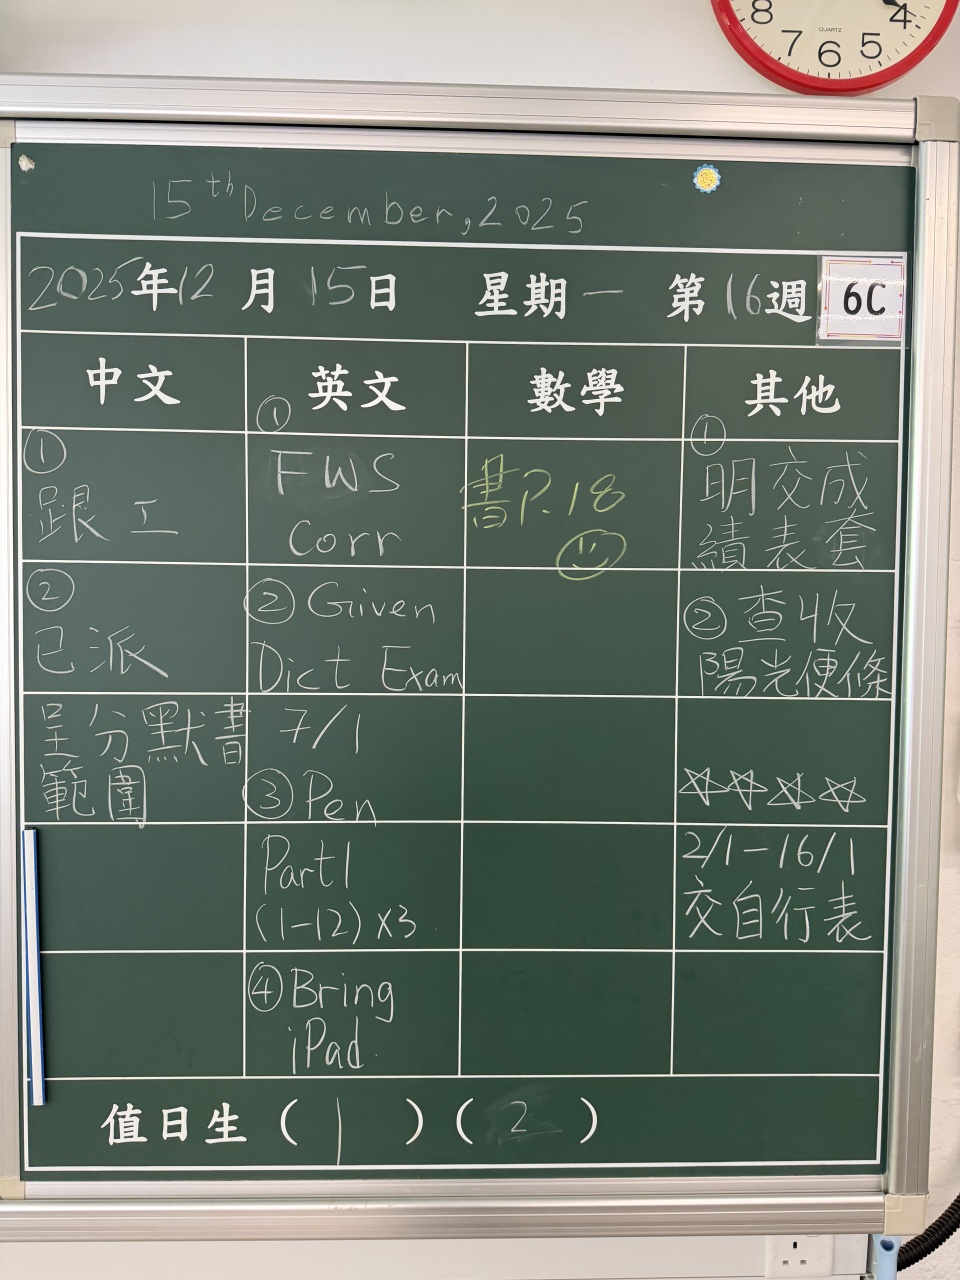 8 7 6 5 4
QUARTZ
15th December, 2025
2025年12月15日 星期一 第16週 6C
中文 英文 數學 其他
①
跟工
②
已派
呈分默書
範圍
①
FWS
Corr
② Given
Dict Exam
7/1
③ Pen
Part 1
(1-12) x3
④ Bring
iPad
書P.18
①
明交成
績表套
② 查收
陽光便條
2/1-16/1
交自行表
值日生 ( 1 ) ( 2 )